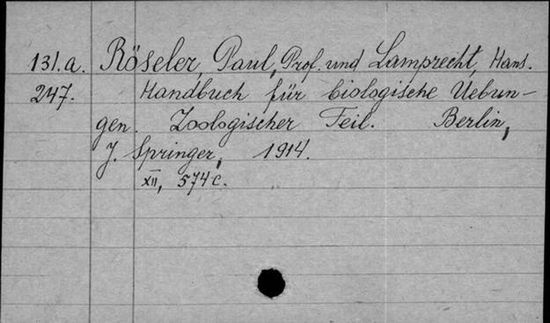 131.a. Röseler, Paul, Prof. und Lamprecht, Hans.
247. Handbuch für biologische Uebun-
gen. Zoologischer Teil. Berlin,
J. Springer, 1914.
XII, 574 c.